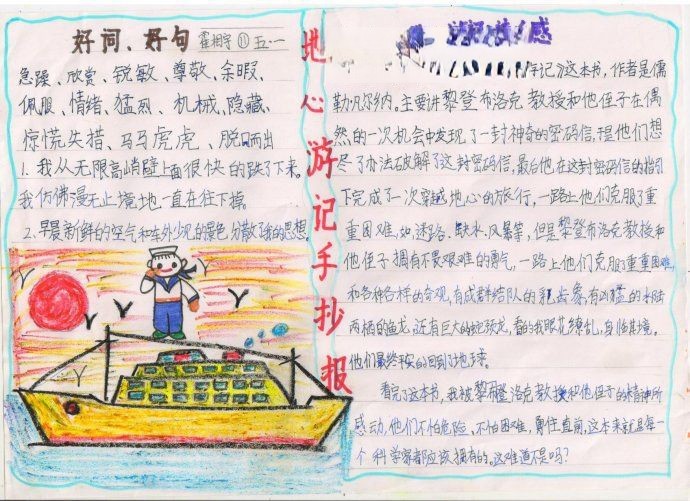 好词、好句 霍相宇 ⑪ 五·一
急躁、欣赏、锐敏、尊敬、余暇、
佩服、情绪、猛烈、机械、隐藏、
惊慌失措、马马虎虎、脱口而出
1. 我从无限高峭壁上面很快的跌了下来。
我仿佛漫无止境地一直在往下掉
2. 早晨新鲜的空气和车外少见的景色,分散了我的思想。
地心游记手抄报
感
游记》这本书，作者是儒
勒·凡尔纳。主要讲黎登布洛克教授和他侄子在偶
然的一次机会中发现了一封神奇的密码信，于是他们想
尽了办法破解了这封密码信，最后他在这封密码信的指引
下完成了一次穿越地心的旅行，一路上他们克服了重
重困难，如迷路、缺水、风暴等，但是黎登布洛克教授和
他侄子拥有不畏艰难的勇气，一路上他们克服了重重困难
和各种各样的奇观，有成群结队的乳齿象，有凶猛的水陆
两栖的鱼龙，还有巨大的蛇颈龙，看的我眼花缭乱，身临其境。
他们最终平安的回到了地球。
看完了这本书，我被黎登布洛克教授和他侄子的精神所
感动，他们不怕危险、不怕困难，勇往直前，这本来就是每一
个科学家都应该拥有的。这难道不是吗？